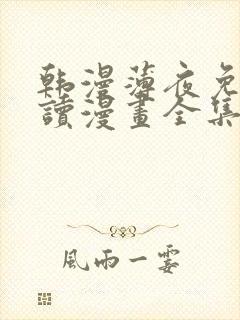 韩漫薄夜免
讀漫畫全集
風雨一霎